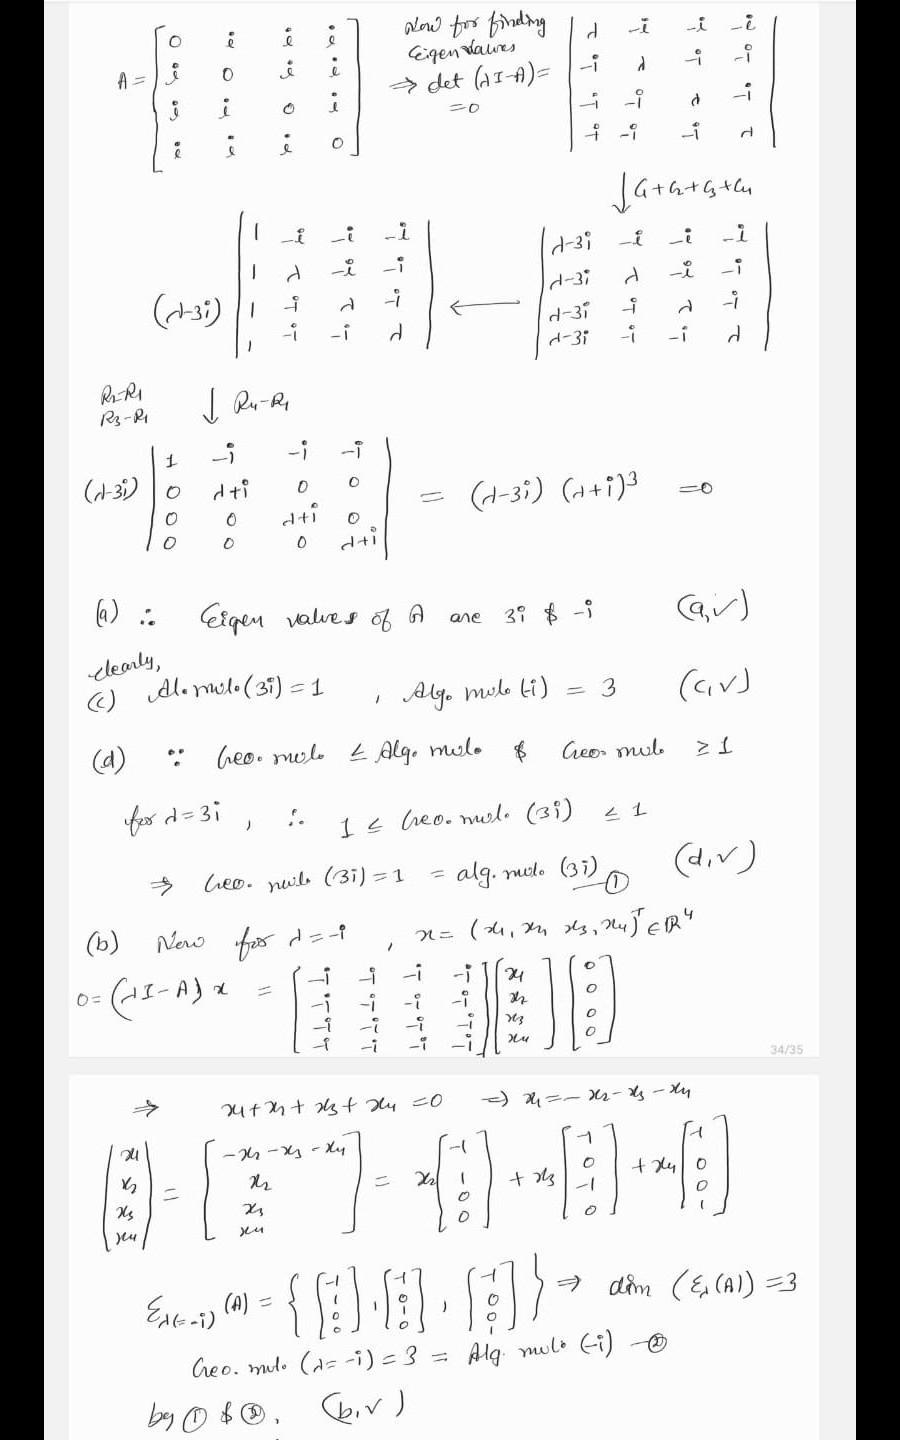 A = [ 0 i i i
i 0 i i
i i 0 i
i i i 0 ]
Now for finding
Eigenvalues
⇒ det (λI-A) =
=0
| λ -i -i -i
-i λ -i -i
-i -i λ -i
-i -i -i λ |
↓ C1+C2+C3+C4
| λ-3i -i -i -i
λ-3i λ -i -i
λ-3i -i λ -i
λ-3i -i -i λ |
←
(λ-3i) | 1 -i -i -i
1 λ -i -i
1 -i λ -i
1 -i -i λ |
R2-R1
R3-R1
↓ R4-R1
(λ-3i) | 1 -i -i -i
0 λ+i 0 0
0 0 λ+i 0
0 0 0 λ+i | = (λ-3i) (λ+i)³ =0
(a) ∴ Eigen values of A are 3i & -i (a,✓)
clearly,
(c) Al. mul. (3i) = 1 , Algo. mul. (-i) = 3 (c,✓)
(d) ∵ Geo. mul. ≤ Algo. mul. & Geo. mul. ≥ 1
for λ=3i , ∴ 1 ≤ Geo. mul. (3i) ≤ 1
⇒ Geo. mul. (3i) = 1 = alg. mul. (3i) —① (d,✓)
(b) Now for λ=-i , x = (x1, x2 x3, x4)ᵀ ∈ ℝ⁴
0 = (λI-A) x = [ -i -i -i -i
-i -i -i -i
-i -i -i -i
-i -i -i -i ] [ x1
x2
x3
x4 ] [ 0
0
0
0 ]
34/35
⇒ x1+x2+x3+x4 =0 ⇒ x1=-x2-x3-x4
[ x1
x2
x3
x4 ] = [ -x2-x3-x4
x2
x3
x4 ] = x2 [ -1
1
0
0 ] + x3 [ -1
0
-1
0 ] + x4 [ -1
0
0
1 ]
Ελ(=-i) (A) = { [ -1
1
0
0 ] , [ -1
0
1
0 ] , [ -1
0
0
1 ] } ⇒ dim (Ελ(A)) = 3
Geo. mul. (λ=-i) = 3 = Alg. mul. (-i) —②
by ① & ②, (b,✓)